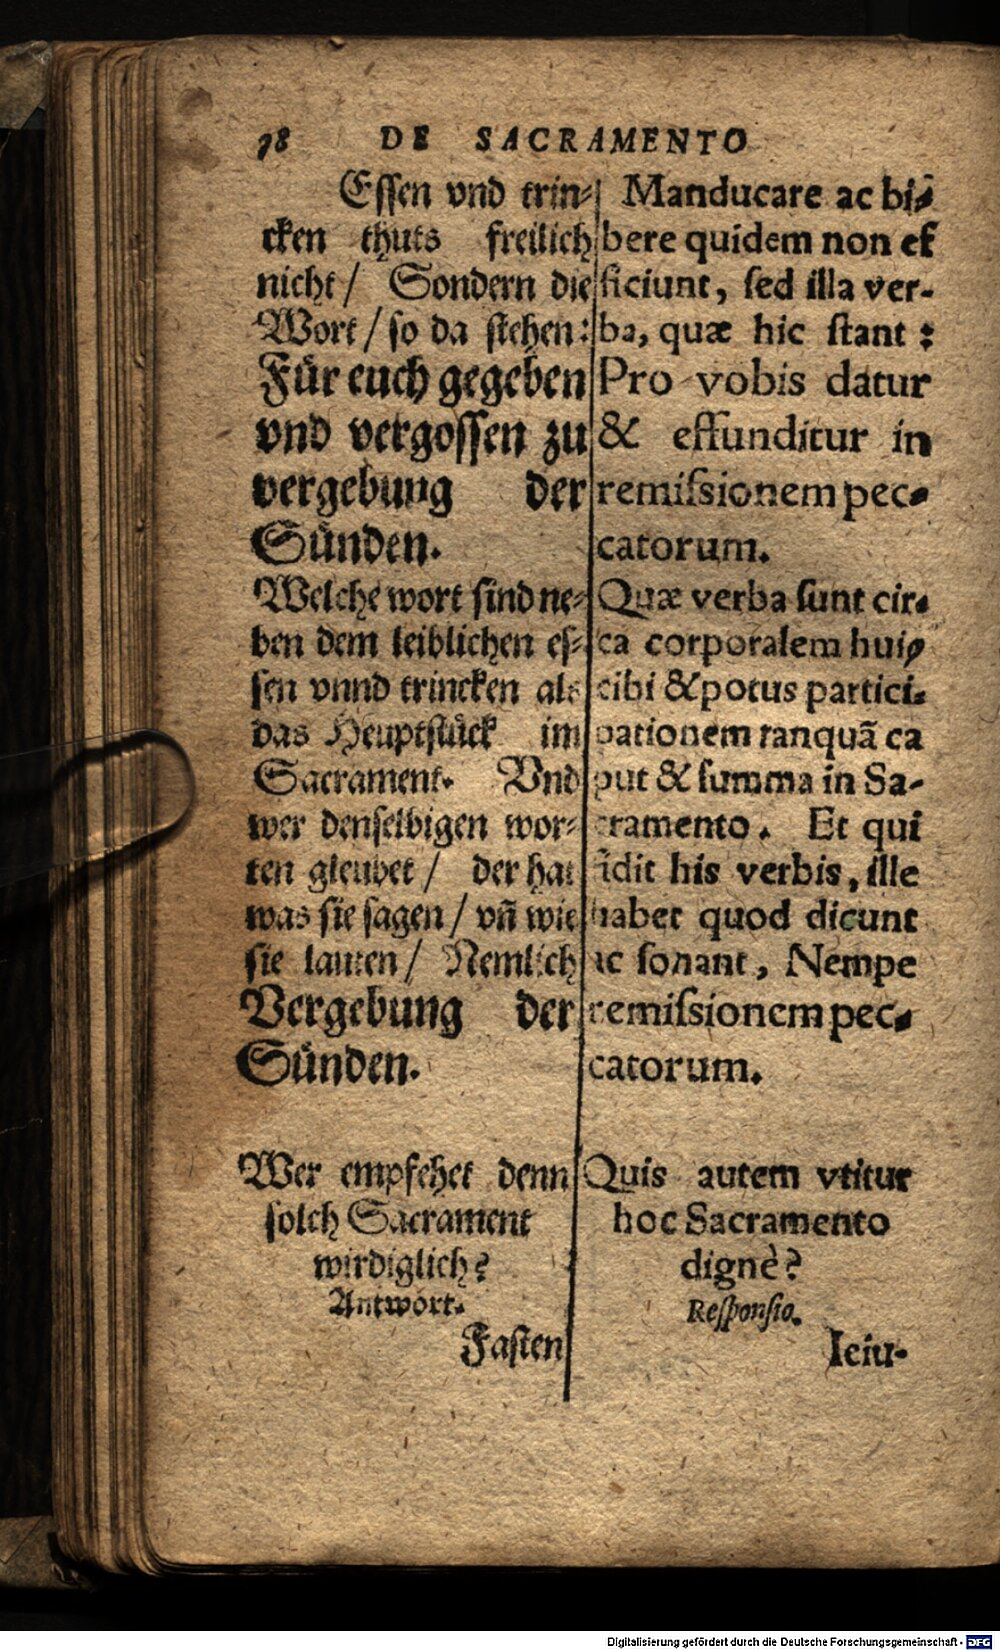 78 DE SACRAMENTO
Eſſen vnd trin⸗
cken thuts freilich
nicht / Sondern die
Wort / ſo da ſtehen:
Für euch gegeben
vnd vergoſſen zu
vergebung der
Sünden.
Welche wort ſind ne⸗
ben dem leiblichen eſ⸗
ſen vnnd trincken als
das Heuptſtück im
Sacrament. Vnd
wer denſelbigen wor⸗
ten gleubet / der hat
was ſie ſagen / vñ wie
ſie lauten / Nemlich
Vergebung der
Sünden.
Wer empfehet denn
ſolch Sacrament
wirdiglich?
Antwort.
Faſten
Manducare ac bi-
bere quidem non ef
ficiunt, ſed illa ver-
ba, quæ hic ſtant:
Pro vobis datur
& effunditur in
remiſsionem pec-
catorum.
Quæ verba ſunt cir-
ca corporalem huiꝰ
cibi & potus partici-
pationem tanquã ca
put & ſumma in Sa-
cramento. Et qui
fidit his verbis, ille
habet quod dicunt
ac ſonant, Nempe
remiſsionem pec-
catorum.
Quis autem vtitur
hoc Sacramento
dignè?
Reſponſio.
Ieiu-
Digitalisierung gefördert durch die Deutsche Forschungsgemeinschaft - DFG